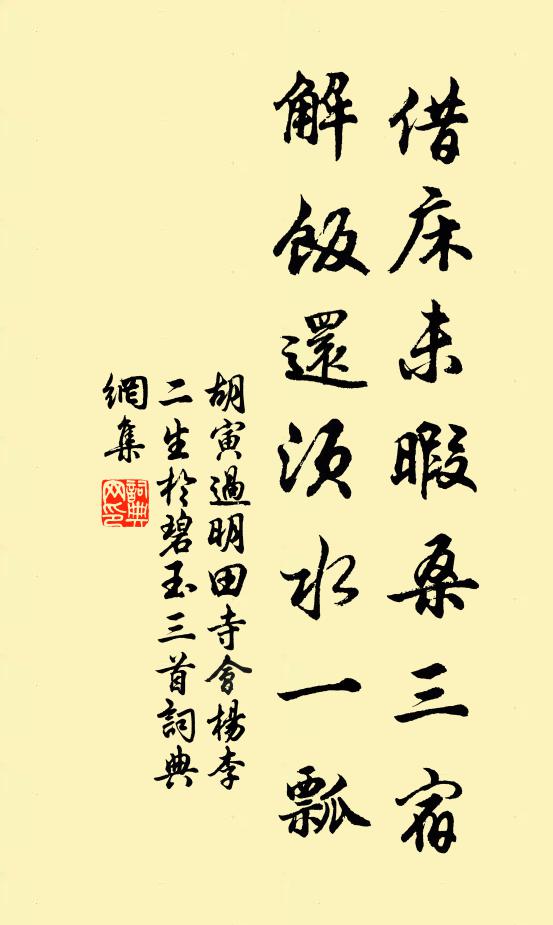 借床未暇桑三宿
解飯還須水一瓢
胡寅過明田寺會楊李
二生於碧玉三首詞典
網集
詞典
网印